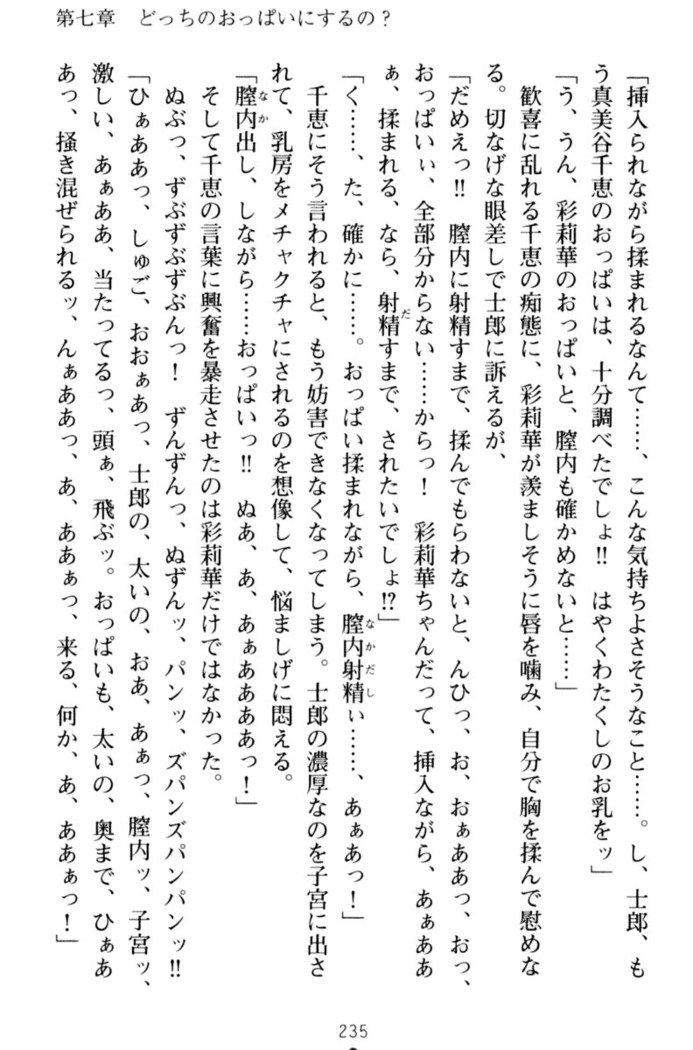 第七章　どっちのおっぱいにするの？
「挿入られながら揉まれるなんて……、こんな気持ちよさそうなこと……。し、士郎、も
う真美谷千恵のおっぱいは、十分調べたでしょ!!　はやくわたくしのお乳をッ」
「う、うん、彩莉華のおっぱいと、膣内も確かめないと……」
　歓喜に乱れる千恵の痴態に、彩莉華が羨ましそうに唇を噛み、自分で胸を揉んで慰めな
る。切なげな眼差しで士郎に訴えるが、
「だめえっ!!　膣内に射精すまで、揉んでもらわないと、んひっ、お、おぁああっ、おっ、
おっぱいぃ、全部分からない……からっ！　彩莉華ちゃんだって、挿入ながら、あぁああ
ぁ、揉まれる、なら、射精すまで、されたいでしょ!?」
「く……、た、確かに……。おっぱい揉まれながら、膣内射精ぃ……、あぁあっ！」
　千恵にそう言われると、もう妨害できなくなってしまう。士郎の濃厚なのを子宮に出さ
れて、乳房をメチャクチャにされるのを想像して、悩ましげに悶える。
「膣内出し、しながら……おっぱいっ!!　ぬあ、あ、あぁああああっ！」
　そして千恵の言葉に興奮を暴走させたのは彩莉華だけではなかった。
　ぬぶっ、ずぶずぶずぶんっ！　ずんずんっ、ぬずんッ、パンッ、ズパンズパンパンッ!!
「ひぁああっ、しゅご、おおぁあっ、士郎の、太いの、おあ、あぁっ、膣内ッ、子宮ッ、
激しい、あぁああ、当たってるっ、頭ぁ、飛ぶッ。おっぱいも、太いの、奥まで、ひぁあ
あっ、掻き混ぜられるッ、んぁああっ、あ、ああぁっ、来る、何か、あ、ああぁっ！」
235